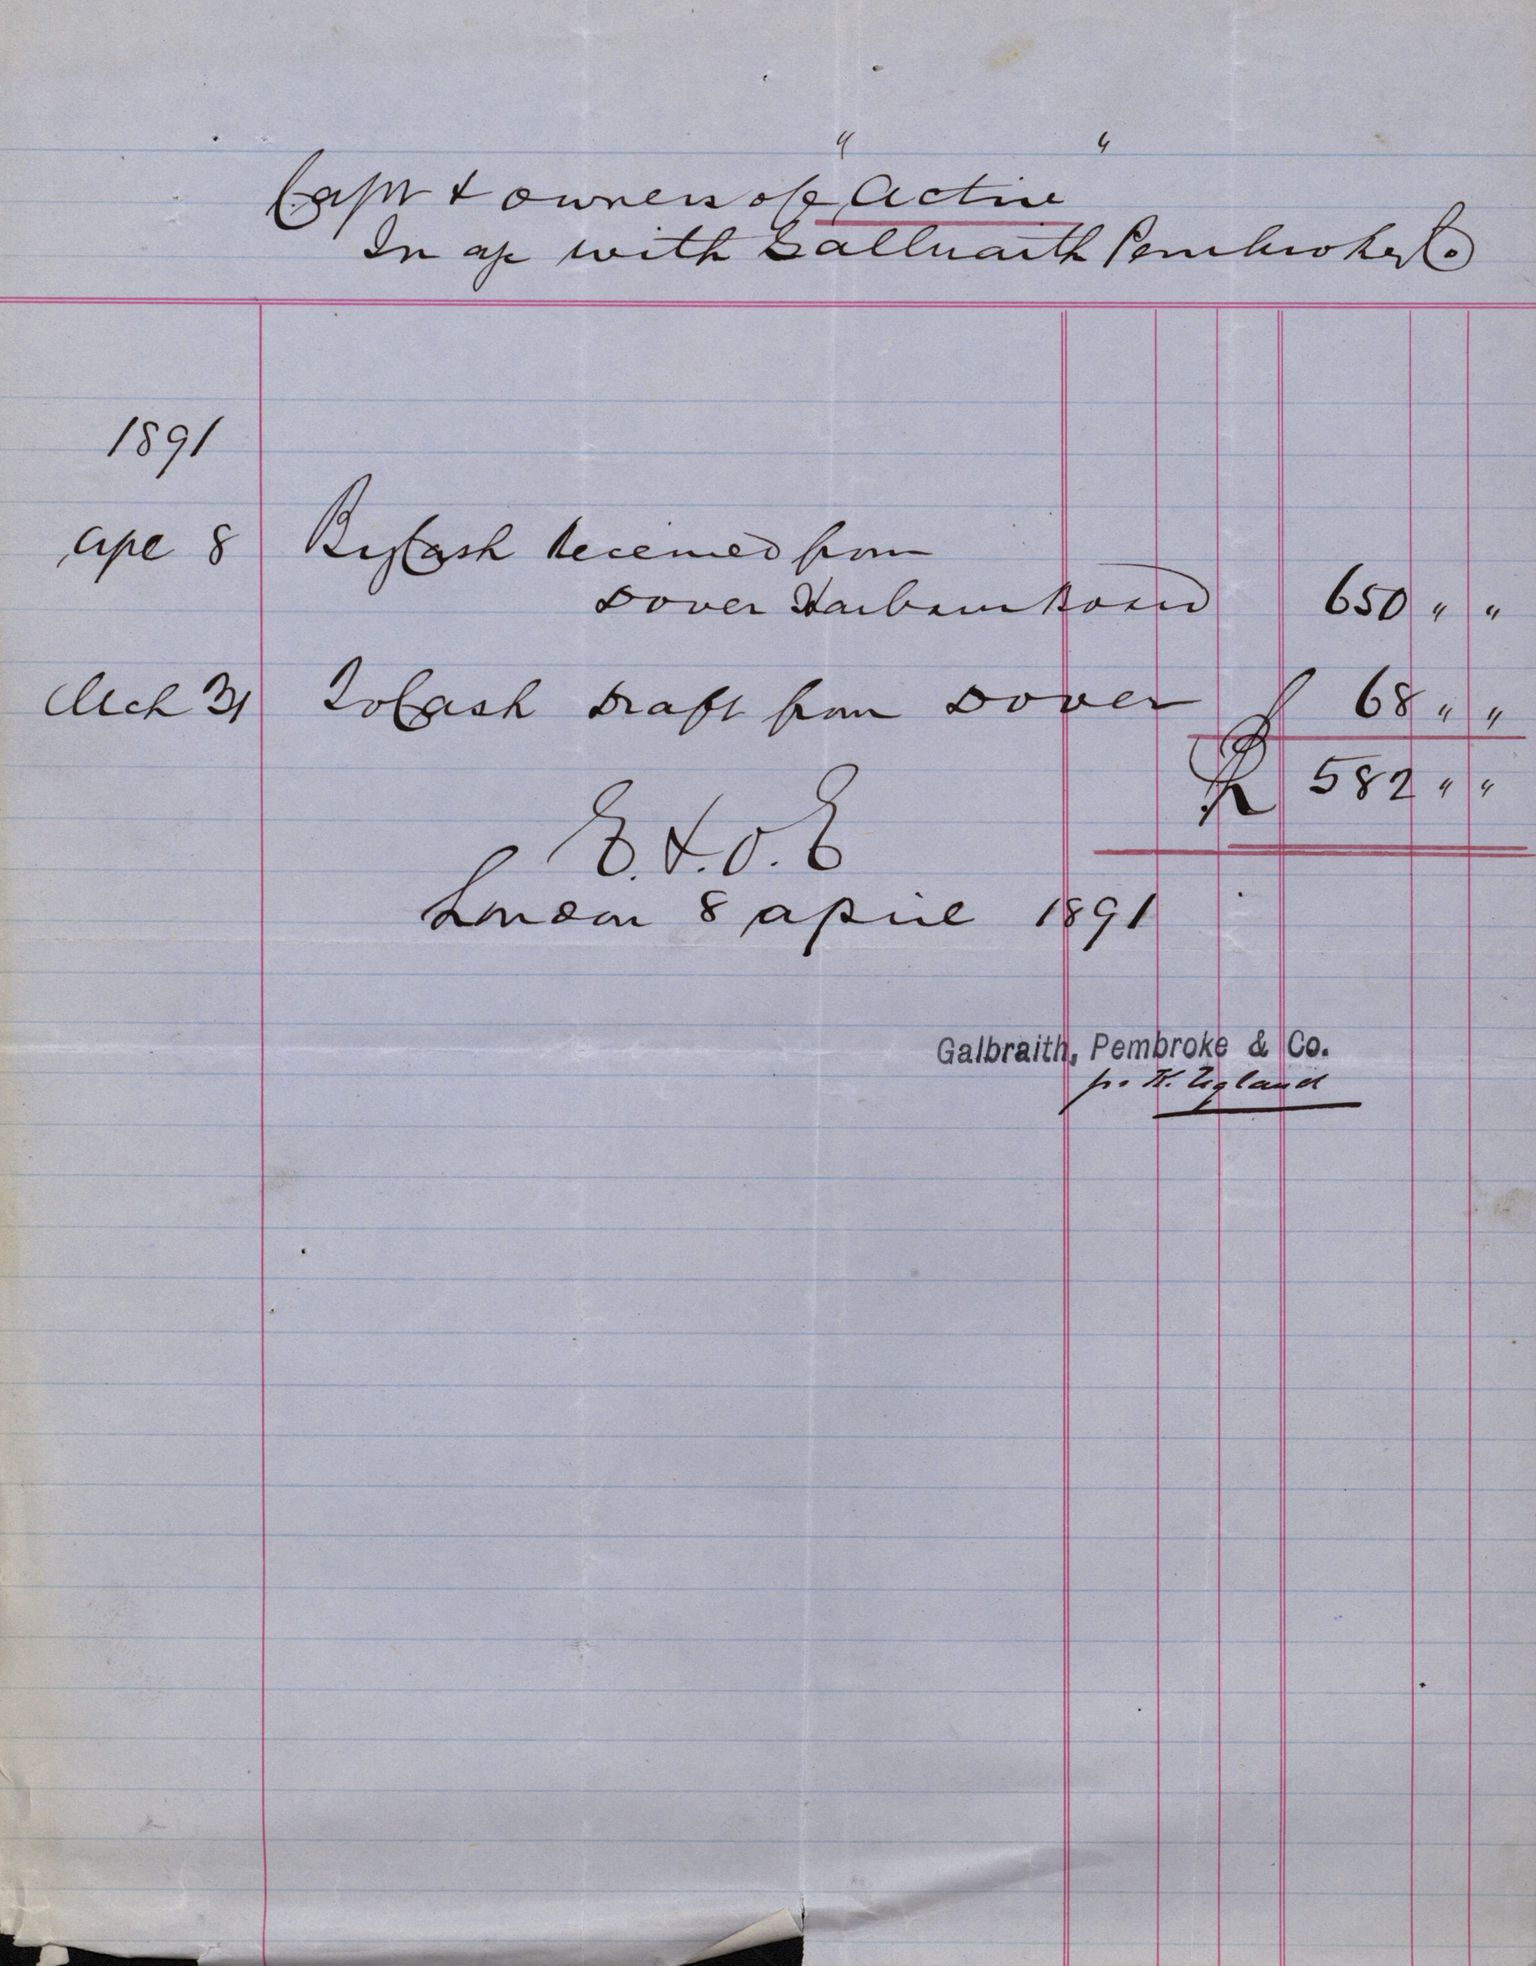 Capt & owners of "Active"
In a/c with Galbraith Pembroke & Co
1891
Apl 8 By Cash received from
Dover Harbour Board 650 " "
Mch 31 To Cash Draft from Dover 68 " "
£ 582 " "
E. & O. E
London 8 April 1891
Galbraith, Pembroke & Co.
p. K. Ugland